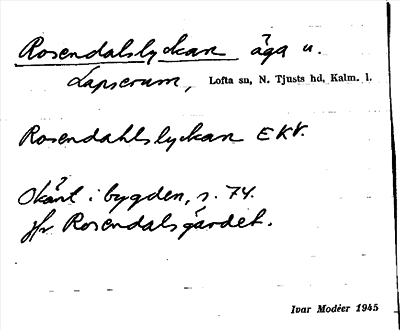 Rosendalslyckan äga u.
Lapserum, Lofta sn, N. Tjusts hd, Kalm. l.
Rosendahlslyckan EKV.
Okänt i bygden, s. 74.
jfr Rosendalsgärdet.
Ivar Modéer 1945